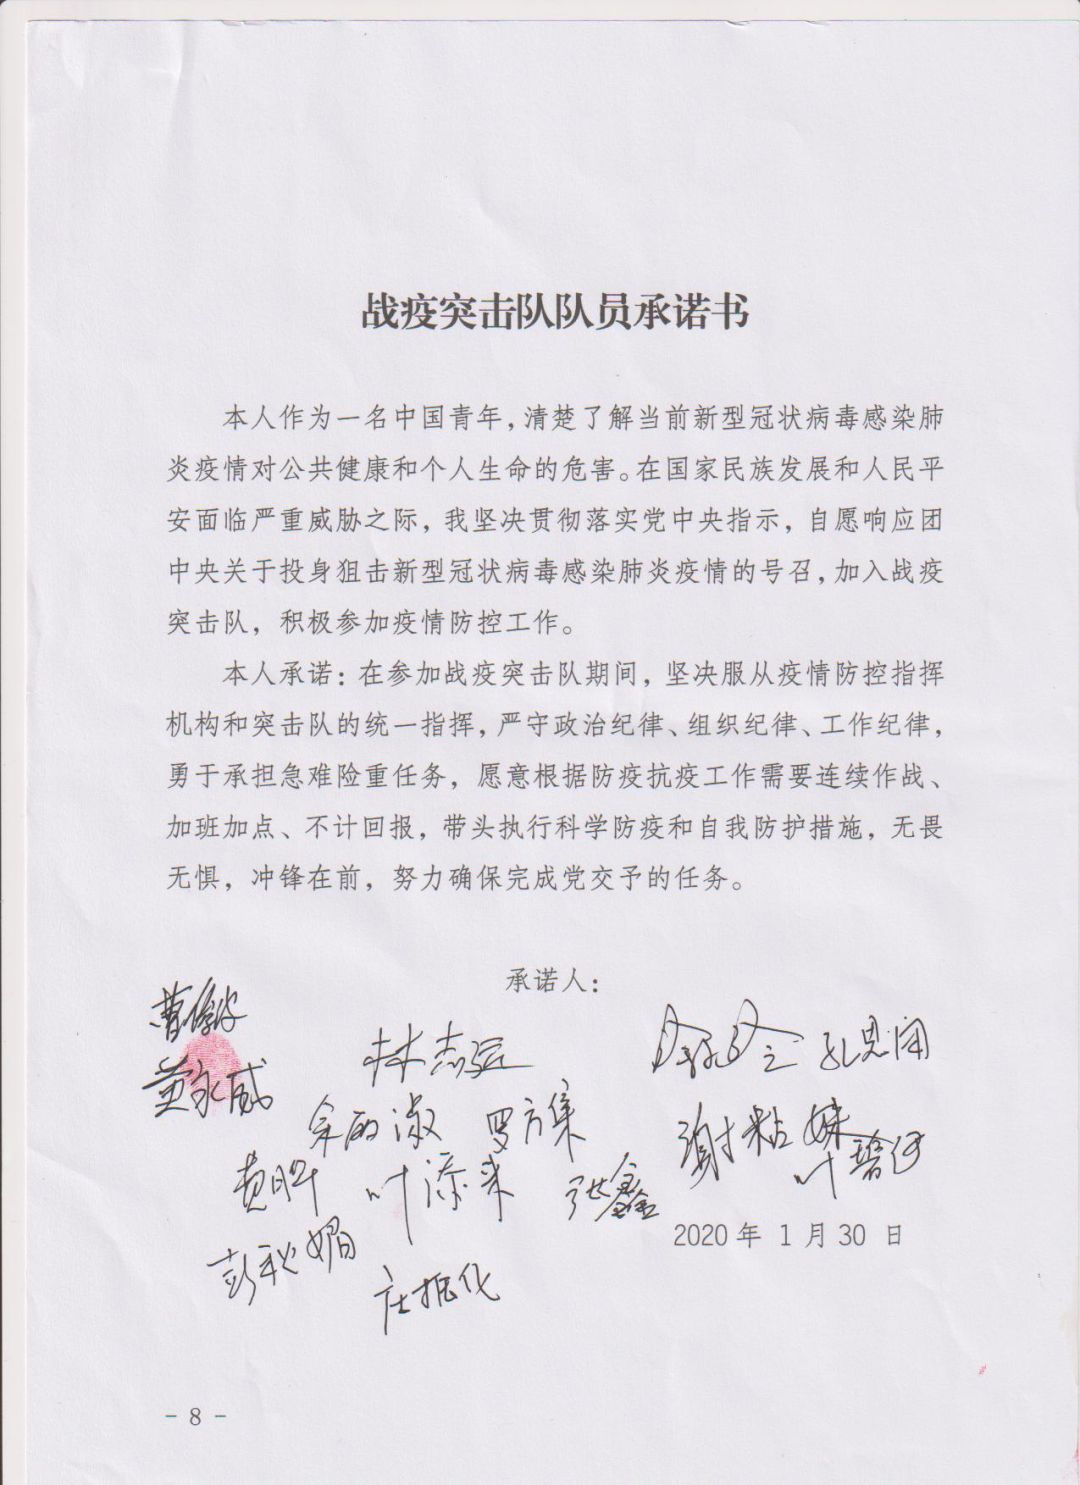 战疫突击队队员承诺书
本人作为一名中国青年，清楚了解当前新型冠状病毒感染肺
炎疫情对公共健康和个人生命的危害。在国家民族发展和人民平
安面临严重威胁之际，我坚决贯彻落实党中央指示，自愿响应团
中央关于投身狙击新型冠状病毒感染肺炎疫情的号召，加入战疫
突击队，积极参加疫情防控工作。
本人承诺：在参加战疫突击队期间，坚决服从疫情防控指挥
机构和突击队的统一指挥，严守政治纪律、组织纪律、工作纪律，
勇于承担急难险重任务，愿意根据防疫抗疫工作需要连续作战、
加班加点、不计回报，带头执行科学防疫和自我防护措施，无畏
无惧，冲锋在前，努力确保完成党交予的任务。
承诺人：
林志远
黄永威
罗方集
谢粘妹
叶添来
张鑫
彭秋媚
庄振化
2020 年 1 月 30 日
- 8 -